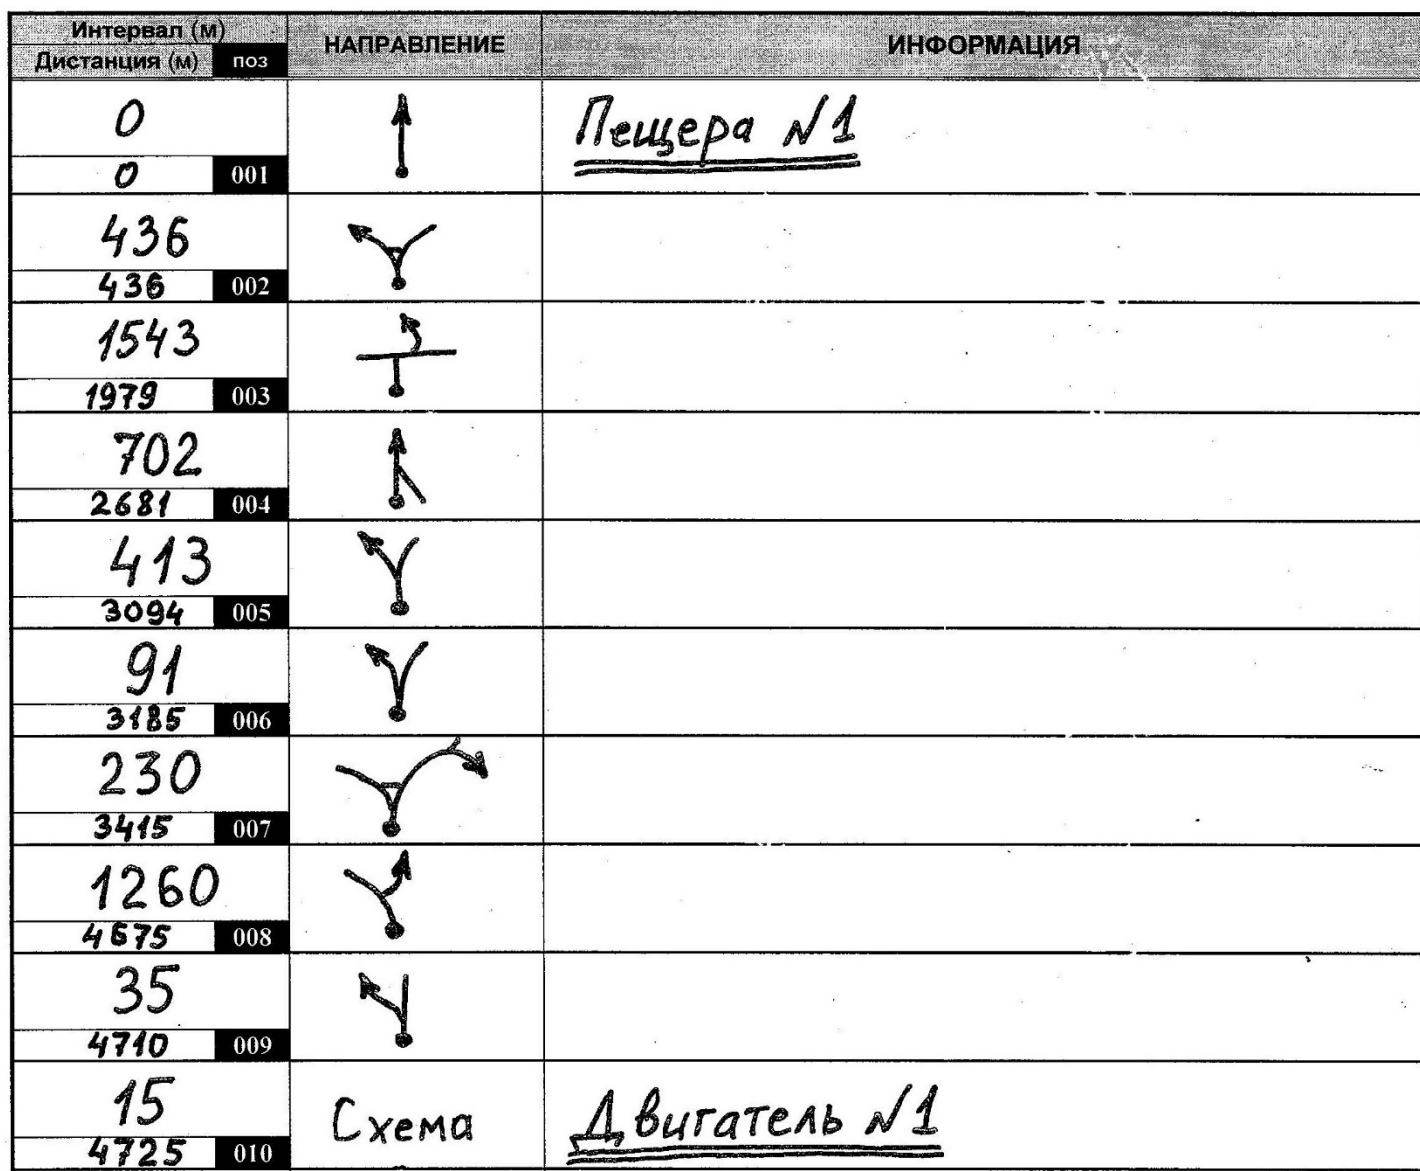 Интервал (м)
Дистанция (м) поз
НАПРАВЛЕНИЕ
ИНФОРМАЦИЯ
0
0 001
Пещера N1
436
436 002
1543
1979 003
702
2681 004
413
3094 005
91
3185 006
230
3415 007
1260
4675 008
35
4710 009
15
4725 010
Схема
Двигатель N1